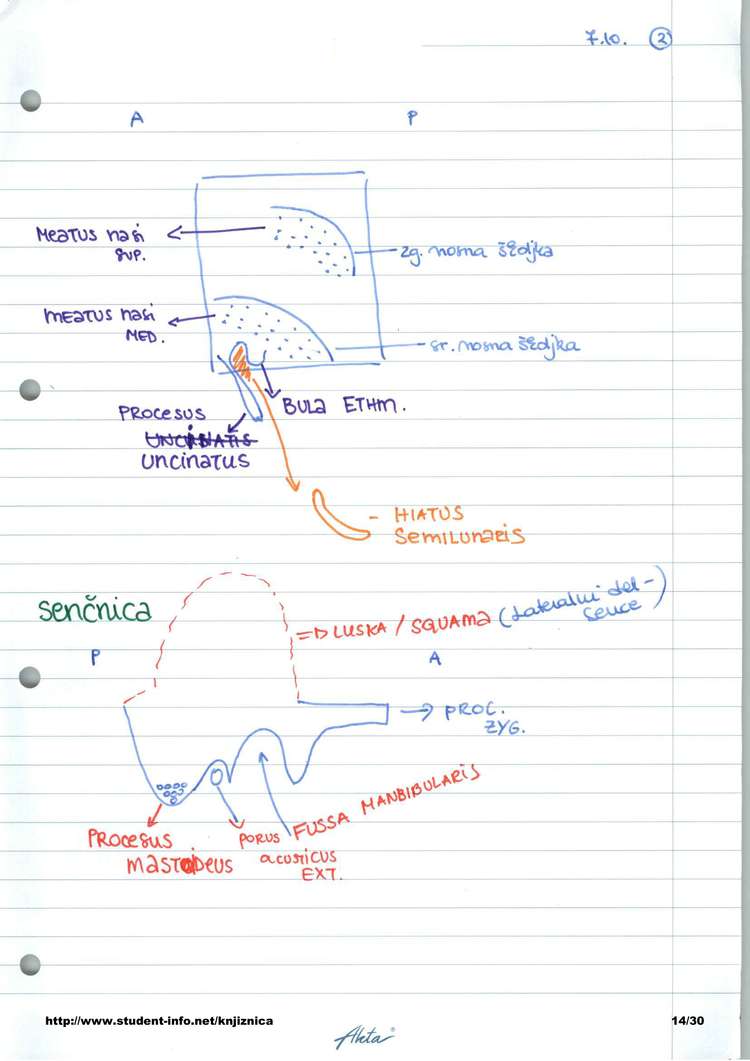 7.10. 2
A P
MEATUS NASI
SUP.
zg. nosna školjka
MEATUS NASI
MED.
sr. nosna školjka
BULA ETHM.
PROCESUS
UNCINATUS
- HIATUS
SEMILUNARIS
SENČNICA
=> LUSKA / SQUAMA (Lateralni del
sence)
P A
PROC.
ZYG.
FUSSA MANBIBULARIS
PROCESUS
MASTOIDEUS
PORUS
ACUSTICUS
EXT.
http://www.student-info.net/knjiznica
14/30